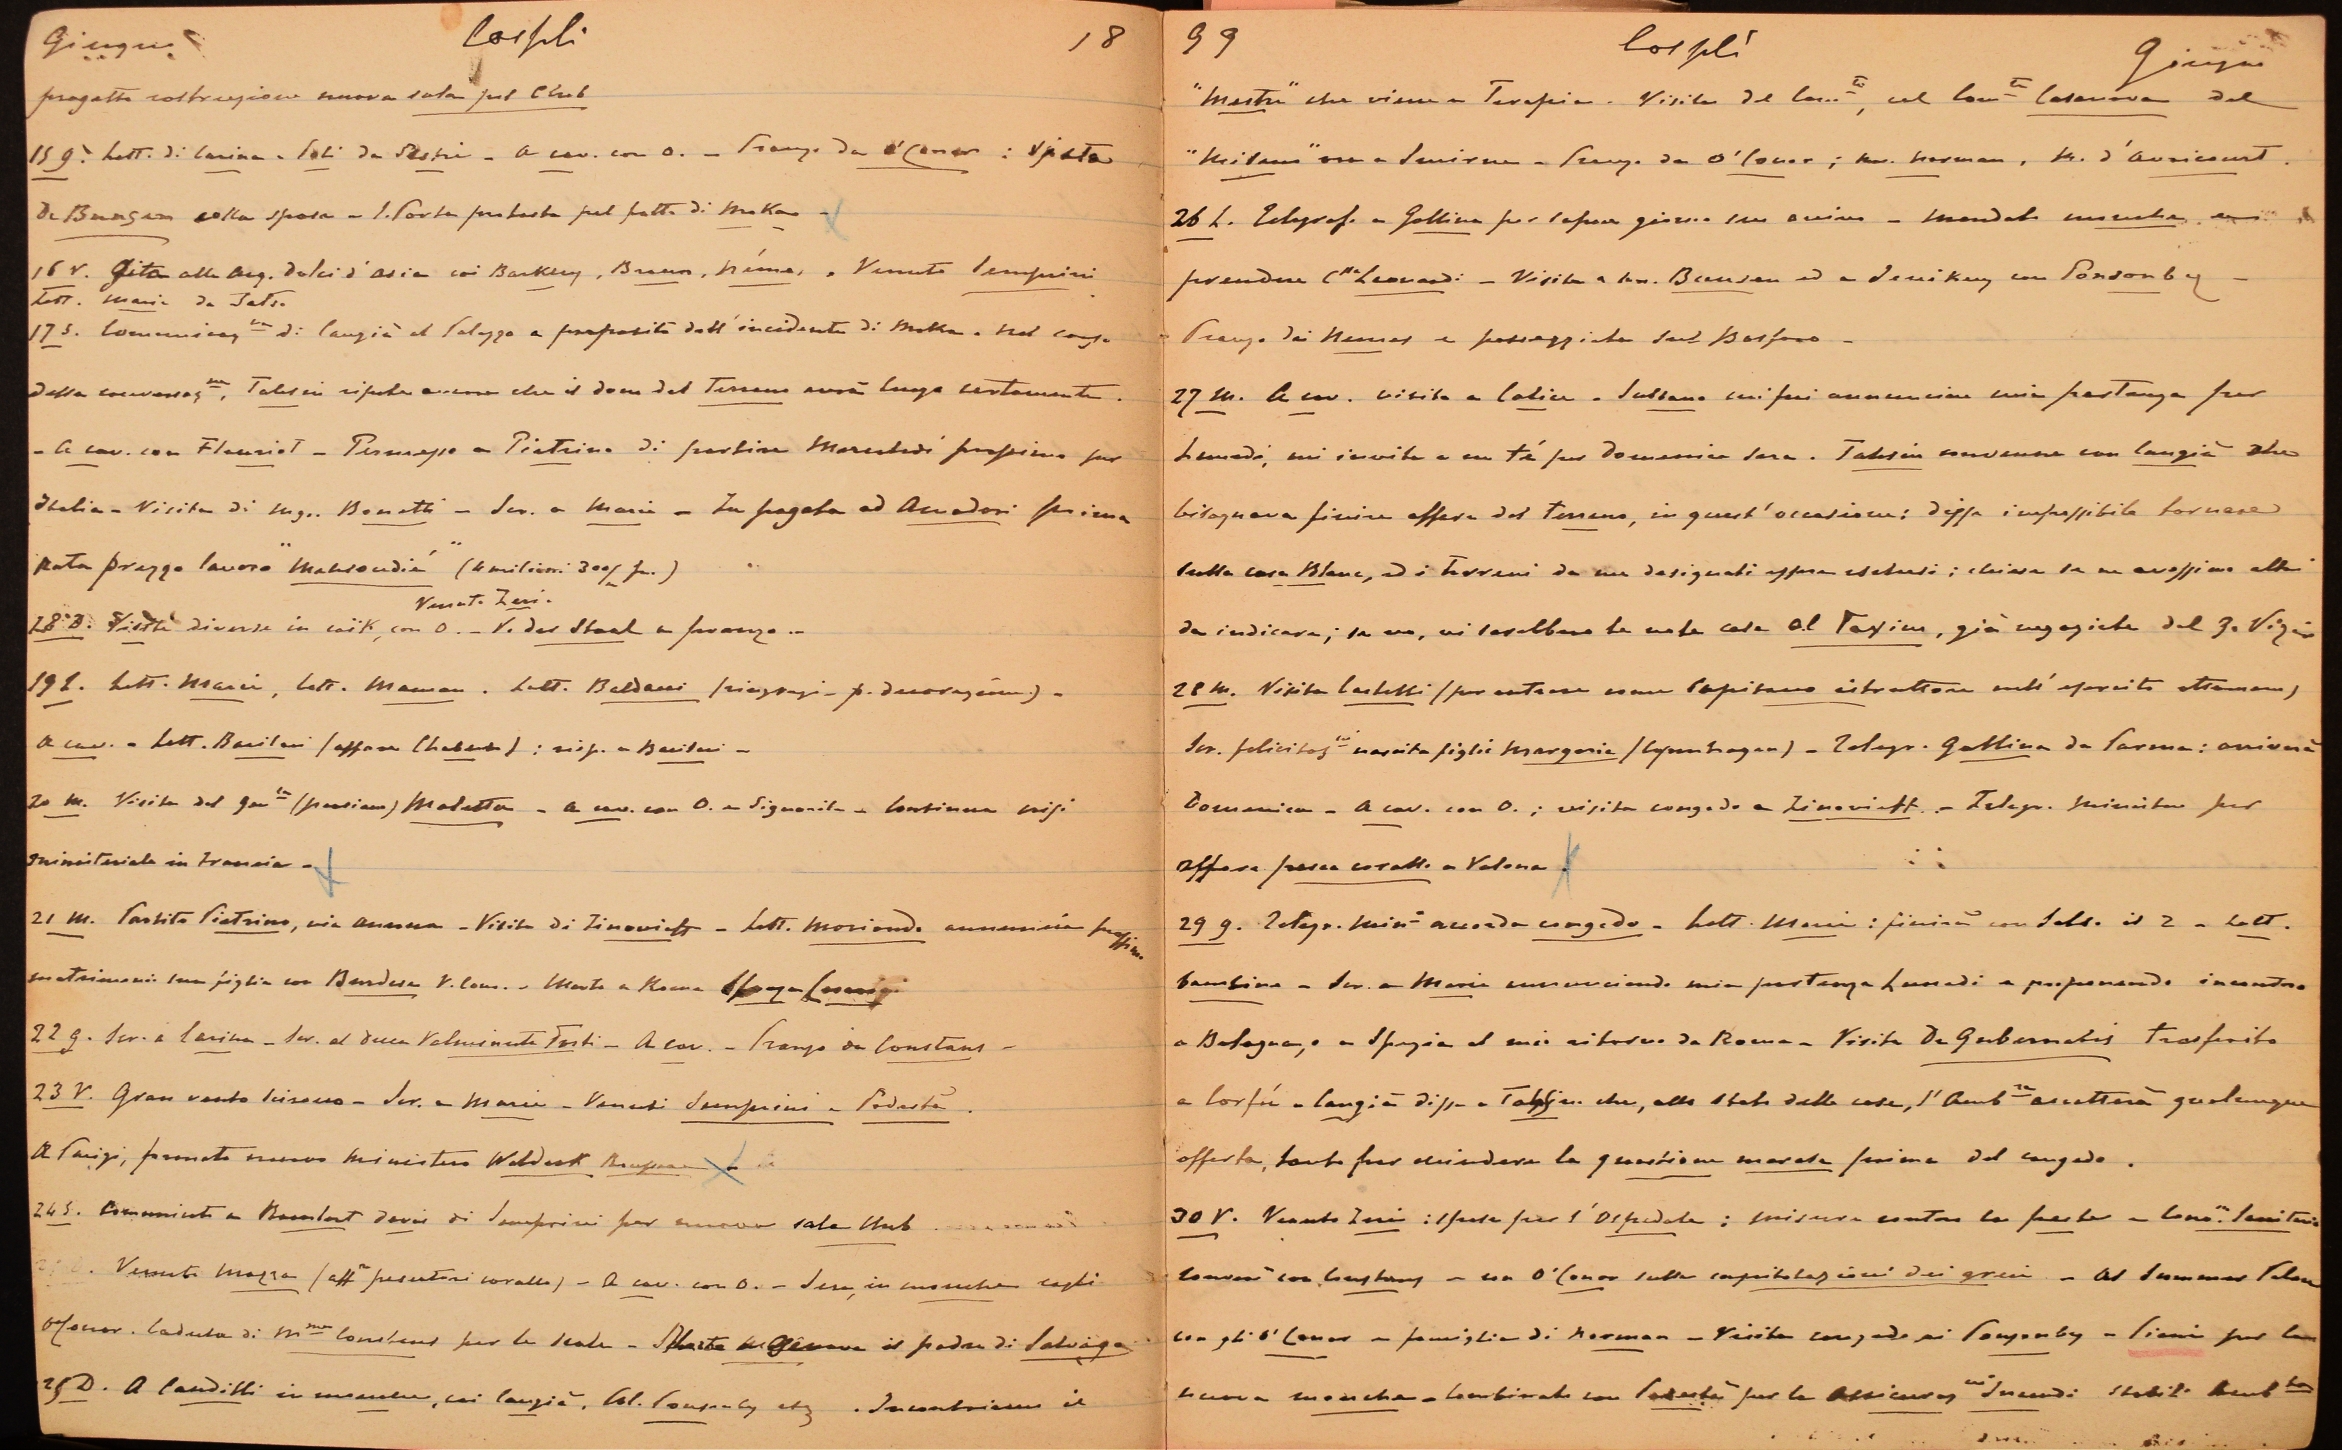 Giugno Cospli 18
progetto costruzione nuova sala pel Club
15 g. Lett. di Carina - Poli da Sestri - A cav. con O. - Pranzo da O'Conor : Visita
De Bunsen colla sposa - S. Porta protesta pel fatto di Moka -
16 V. Gita alle Acq. dolci d'Asia coi Barkley, Braun, Némes. Venuto Semprini
Lett. Maria da Sals.
17 S. Comunicaz.ne di Cangià al Palazzo a proposito dell'incidente di Moka. Nel corso
della conversaz.ne, Tahsin ripete ancora che il dono del Terreno avrà luogo certamente.
- A cav. con Fleuriot - Permesso a Pietrino di partire Mercoledì prossimo per
Italia - Visita di Mgr. Bonetti - Scr. a Maria - Fu pagata ad Ansaldo prima
rata prezzo lavoro "Mahsoudié" (4 milioni 300/m fr.)
Venuto Zeri.
18 D. Visite diverse in caik, con O. - V. der Staal a pranzo -
19 L. Lett. Maria, lett. Maman. Lett. Baldacci (ringrazi. p. decorazione) -
A cav. - Lett. Barilari (affare ) : risp. a Barilari -
20 M. Visita del Gen.le (persiano) Maletta - A cav. con O. a Signorita - Continua crisi
ministeriale in Francia -
21 M. Partito Pietrino, via Ancona - Visita di Zinovieff - Lett. Moriondo annunzia prossimo
matrimonio sua figlia con Bardesa V. Cons. - Morto a Roma
22 g. Scr. a Carina - Scr. al duca Valminuta Fosti - A cav. - Pranzo da Constans -
23 V. Gran vento scirocco - Scr. a Maria - Venuti Semprini e Podestà.
A Parigi, formato nuovo Ministero Waldeck Rousseau
24 S. Comunicato a devis di Semprini per nuova sala Club
Venuto Mazza (aff.re pescatori corallo) - A cav. con O. - Sera, in mouche cogli
O'Conor. Caduta di M.me Constans per le scale - Morto a Genova il padre di Salvago
25 D. A Candilli in mouche, coi Cangià, Col. Ponsonby etc. Incontriamo il
99 Cospli Giugno
"Mestre" che viene a Terapia. Visita del Com.te, col Com.te Casanova del
"Miseno" ora a Smirne - Pranzo da O'Conor; Mr. Norman, M. d'Avricourt.
26 L. Telegraf. a Gallina per sapere giorno suo arrivo - Mandato mouche a
prendere C.ssa Leonardi - Visita a Mr. Bunsen ed a Jenikeuy con Ponsonby -
Pranzo dai Nemes e passeggiata sul Bosforo -
27 M. A cav. visita a Calice - Sultano cui fui annunciare mia partenza per
Lunedì, mi invita a un té per Domenica sera. Tahsin convenne con Cangià che
bisognava finire affare del terreno, in quest'occasione: disse impossibile tornare
sulla casa Blanc, ed i terreni da me designati essere esclusi; chiese se ne avessimo altri
da indicare; se no, vi sarebbero le note case al Taxim, già negoziate dal G. Vizir
28 M. Visita Castelli (per entrare come Capitano istruttore nell'esercito ottomano)
Scr. felicitaz.ni nascita figlio Margaria (Copenhagen) - Telegr. Gallina da Parma: arriverà
Domenica - A cav. con O.; visita congedo a Zinovieff. - Telegr. Ministro per
affare pesca corallo a Valona.
29 g. Telegr. Min.o accorda congedo - Lett. Maria: finirà con Sals. il 2 - Lett.
bambina - Scr. a Maria annunciando mia partenza Lunedì e proponendo incontro
a Bologna, o a Spezia al mio ritorno da Roma - Visita De Gubernatis trasferito
a Corfù - Cangià disse a Tahsin che, allo stato delle cose, l'Amb.re accetterà qualunque
offerta, tanto per chiudere la questione morale prima del congedo.
30 V. Venuto Zeri : spese per l'Ospedale ; misure contro la peste - Cons.o Sanitario
Conversi con Constans - con O'Conor sulle capitolazioni dei greci - Al Summer Palace
con gli O'Conor e famiglia di Norman - Visita congedo ai Ponsonby - Piani per la
nuova mouche - Combinato con Podestà per le Assicuraz.ni Incendi Stabili Amb.ta